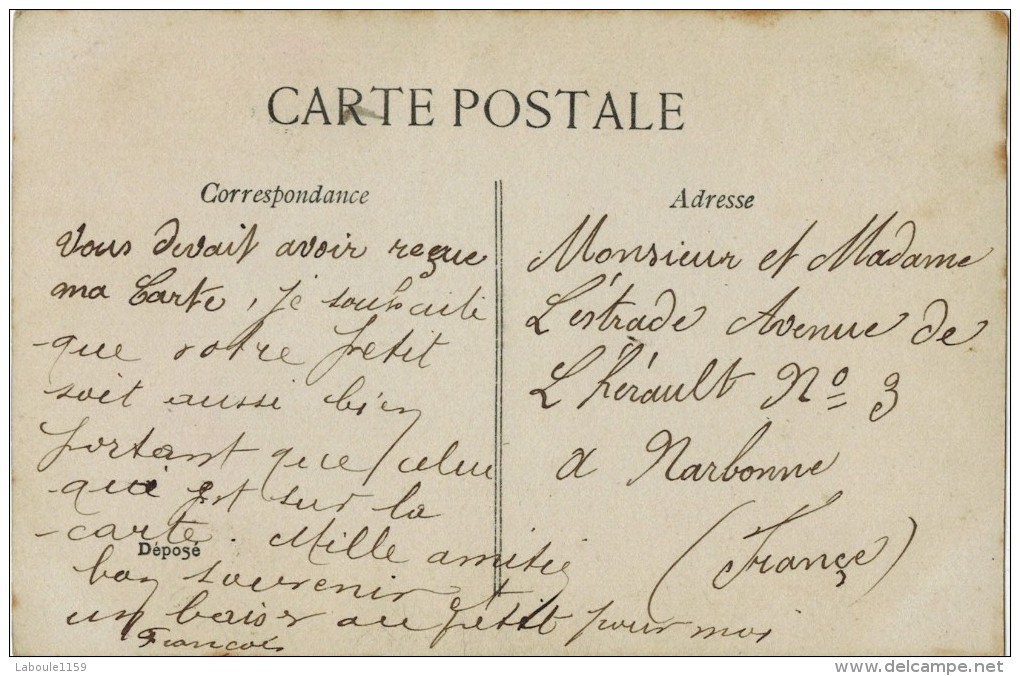 CARTE POSTALE
Correspondance
Vous devait avoir reçue
ma Carte, je souhaite
que votre petit
soit aussi bien
portant que celui
qui est sur la
carte. Mille amitié
Déposé
bon souvenir et
un baiser au petit pour moi
François
Adresse
Monsieur et Madame
L'éstrade Avenue de
L'hérault Nº 3
a Narbonne
(Françe)
Laboule1159
www.delcampe.net